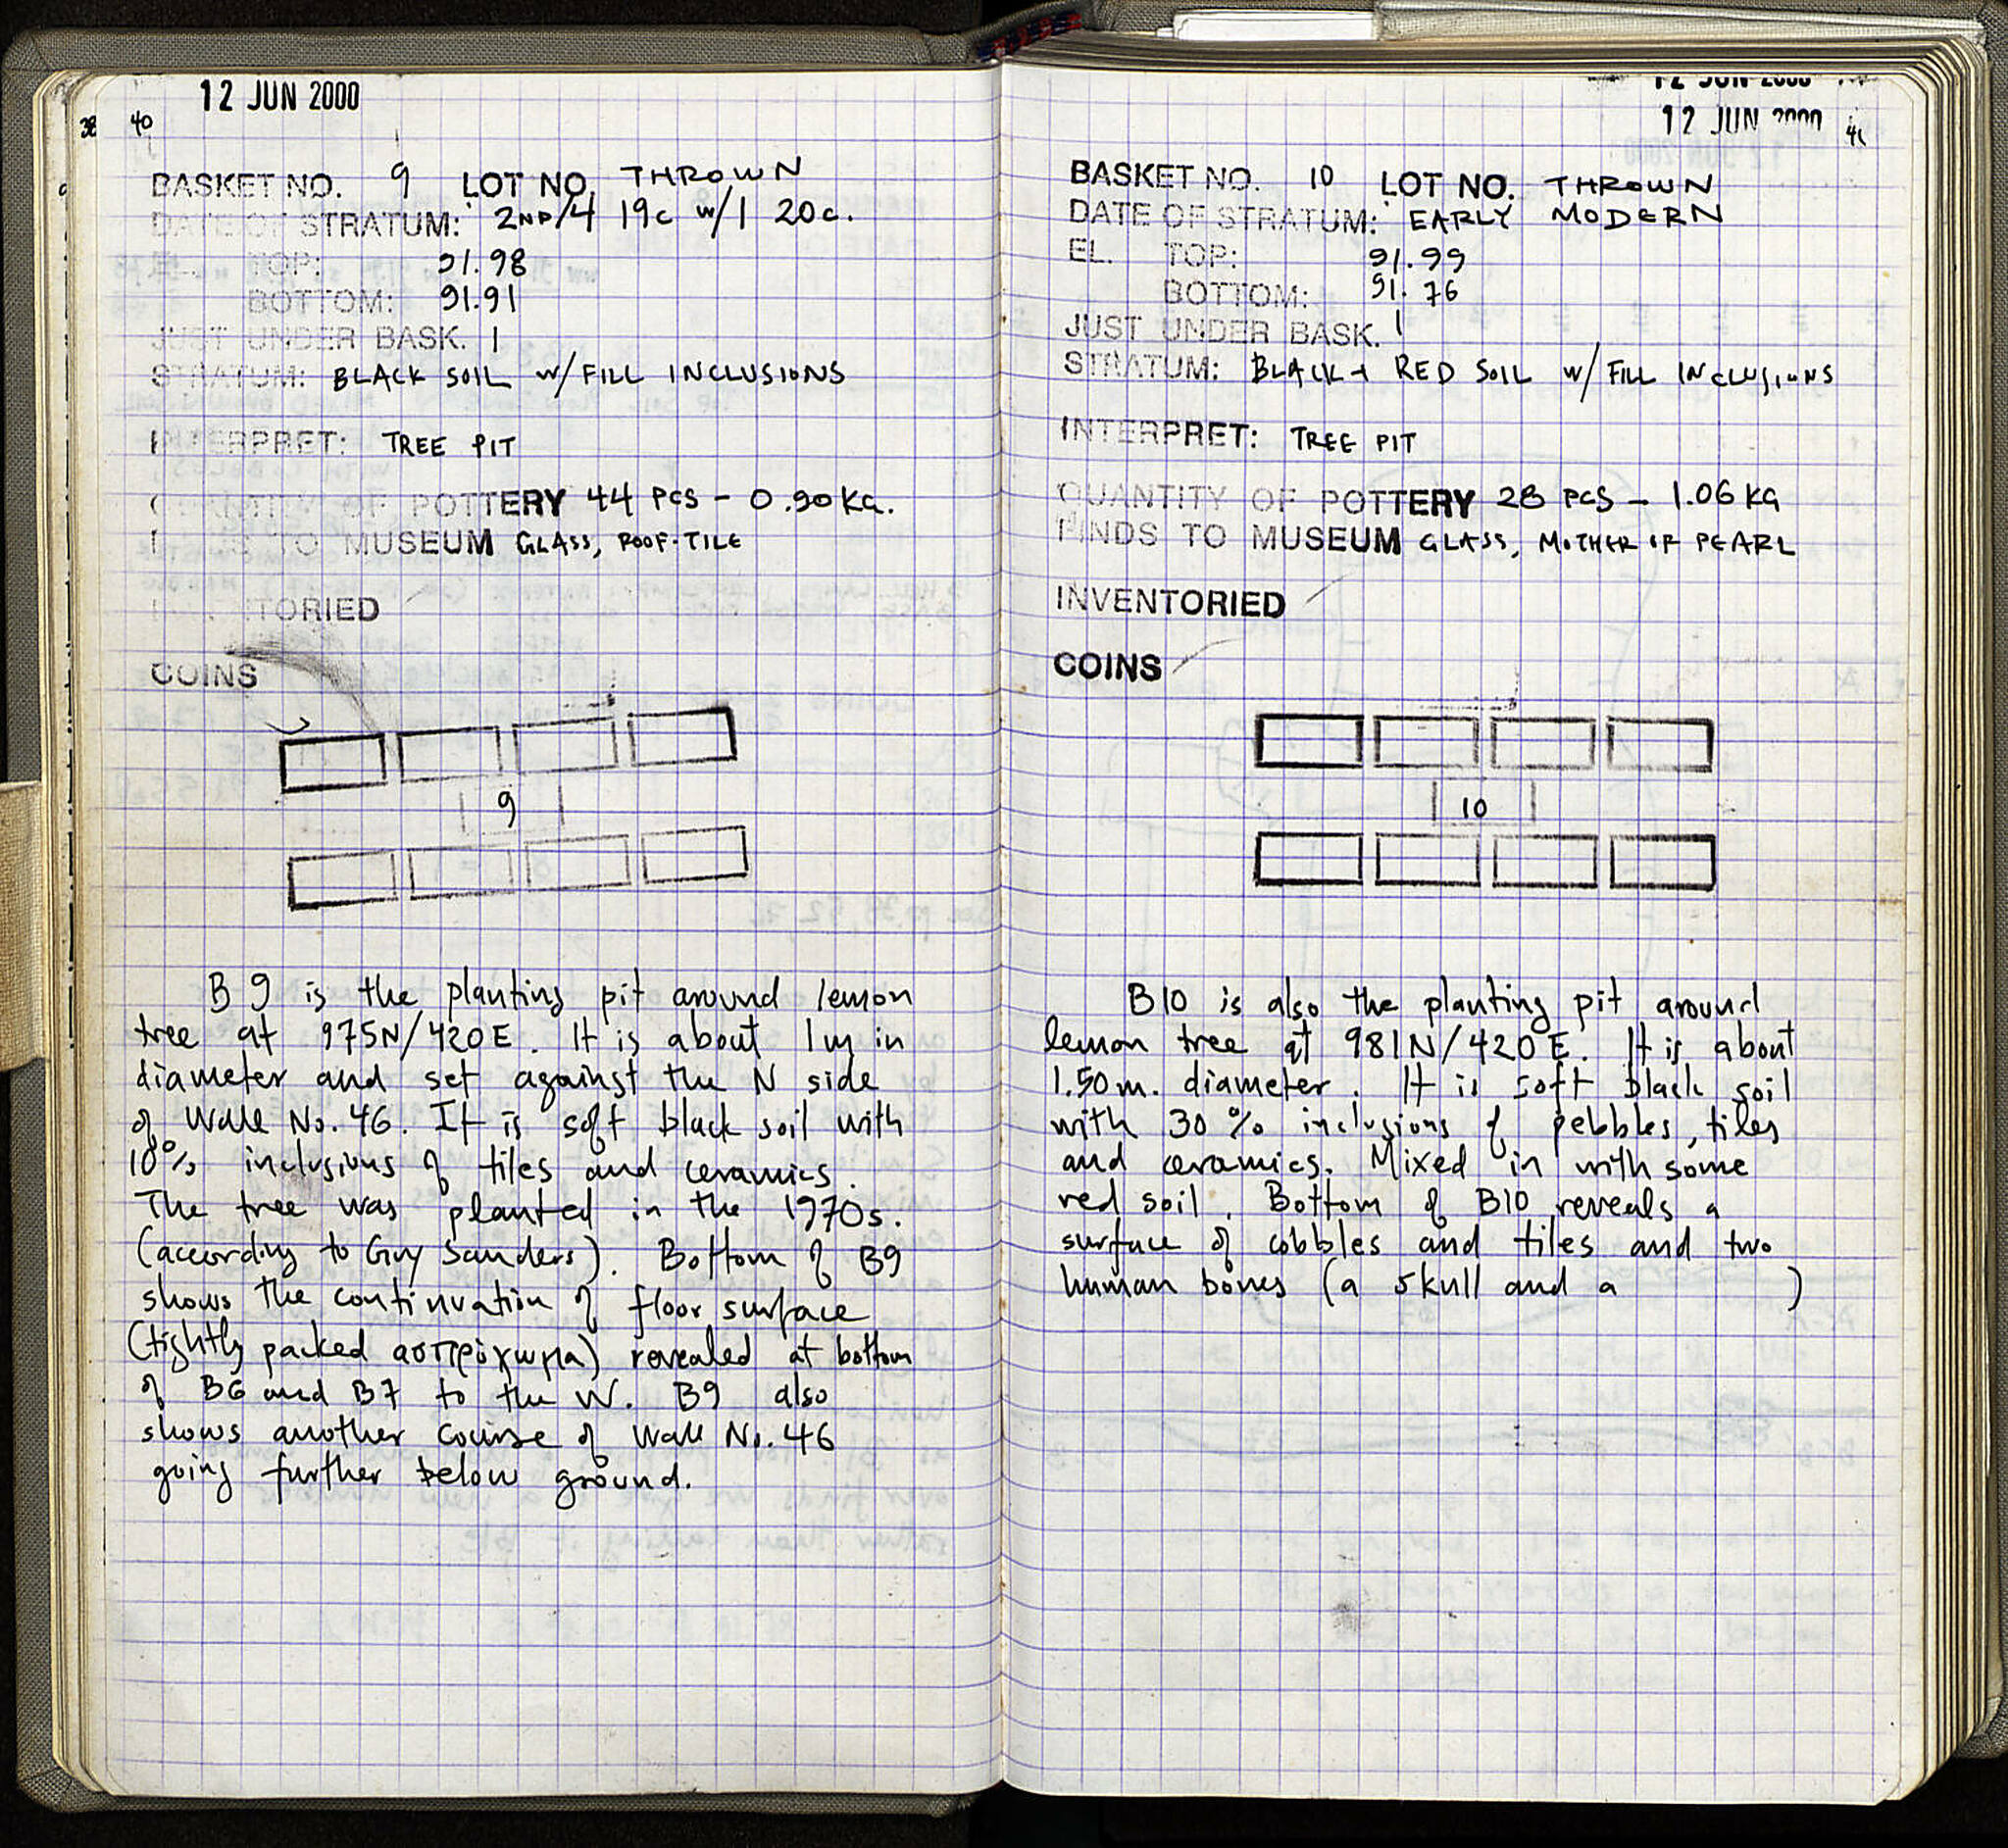 12 JUN 2000
38 40
BASKET NO. 9 LOT NO. THROWN
DATE OF STRATUM: 2ND/4 19c w/1 20c.
EL. TOP: 91.98
BOTTOM: 91.91
JUST UNDER BASK. 1
STRATUM: BLACK SOIL w/ FILL INCLUSIONS
INTERPRET: TREE PIT
QUANTITY OF POTTERY 44 PCS - 0.90 KG.
FINDS TO MUSEUM GLASS, ROOF-TILE
INVENTORIED
COINS
9
B 9 is the planting pit around lemon
tree at 975N/420E. It is about 1m in
diameter and set against the N side
of Wall No. 46. It is soft black soil with
10% inclusions of tiles and ceramics.
The tree was planted in the 1970s.
(according to Guy Sanders). Bottom of B9
shows the continuation of floor surface
(tightly packed ασπρόχωμα) revealed at bottom
of B6 and B7 to the W. B9 also
shows another course of Wall No. 46
going further below ground.
12 JUN 2000
12 JUN 2000
41
BASKET NO. 10 LOT NO. THROWN
DATE OF STRATUM: EARLY MODERN
EL. TOP: 91.99
BOTTOM: 91.76
JUST UNDER BASK. 1
STRATUM: BLACK + RED SOIL w/ FILL INCLUSIONS
INTERPRET: TREE PIT
QUANTITY OF POTTERY 28 PCS - 1.06 KG
FINDS TO MUSEUM GLASS, MOTHER OF PEARL
INVENTORIED
COINS
10
B10 is also the planting pit around
lemon tree at 981N/420E. It is about
1.50m. diameter. It is soft black soil
with 30% inclusions of pebbles, tiles
and ceramics. Mixed in with some
red soil. Bottom of B10 reveals a
surface of cobbles and tiles and two
human bones (a skull and a )